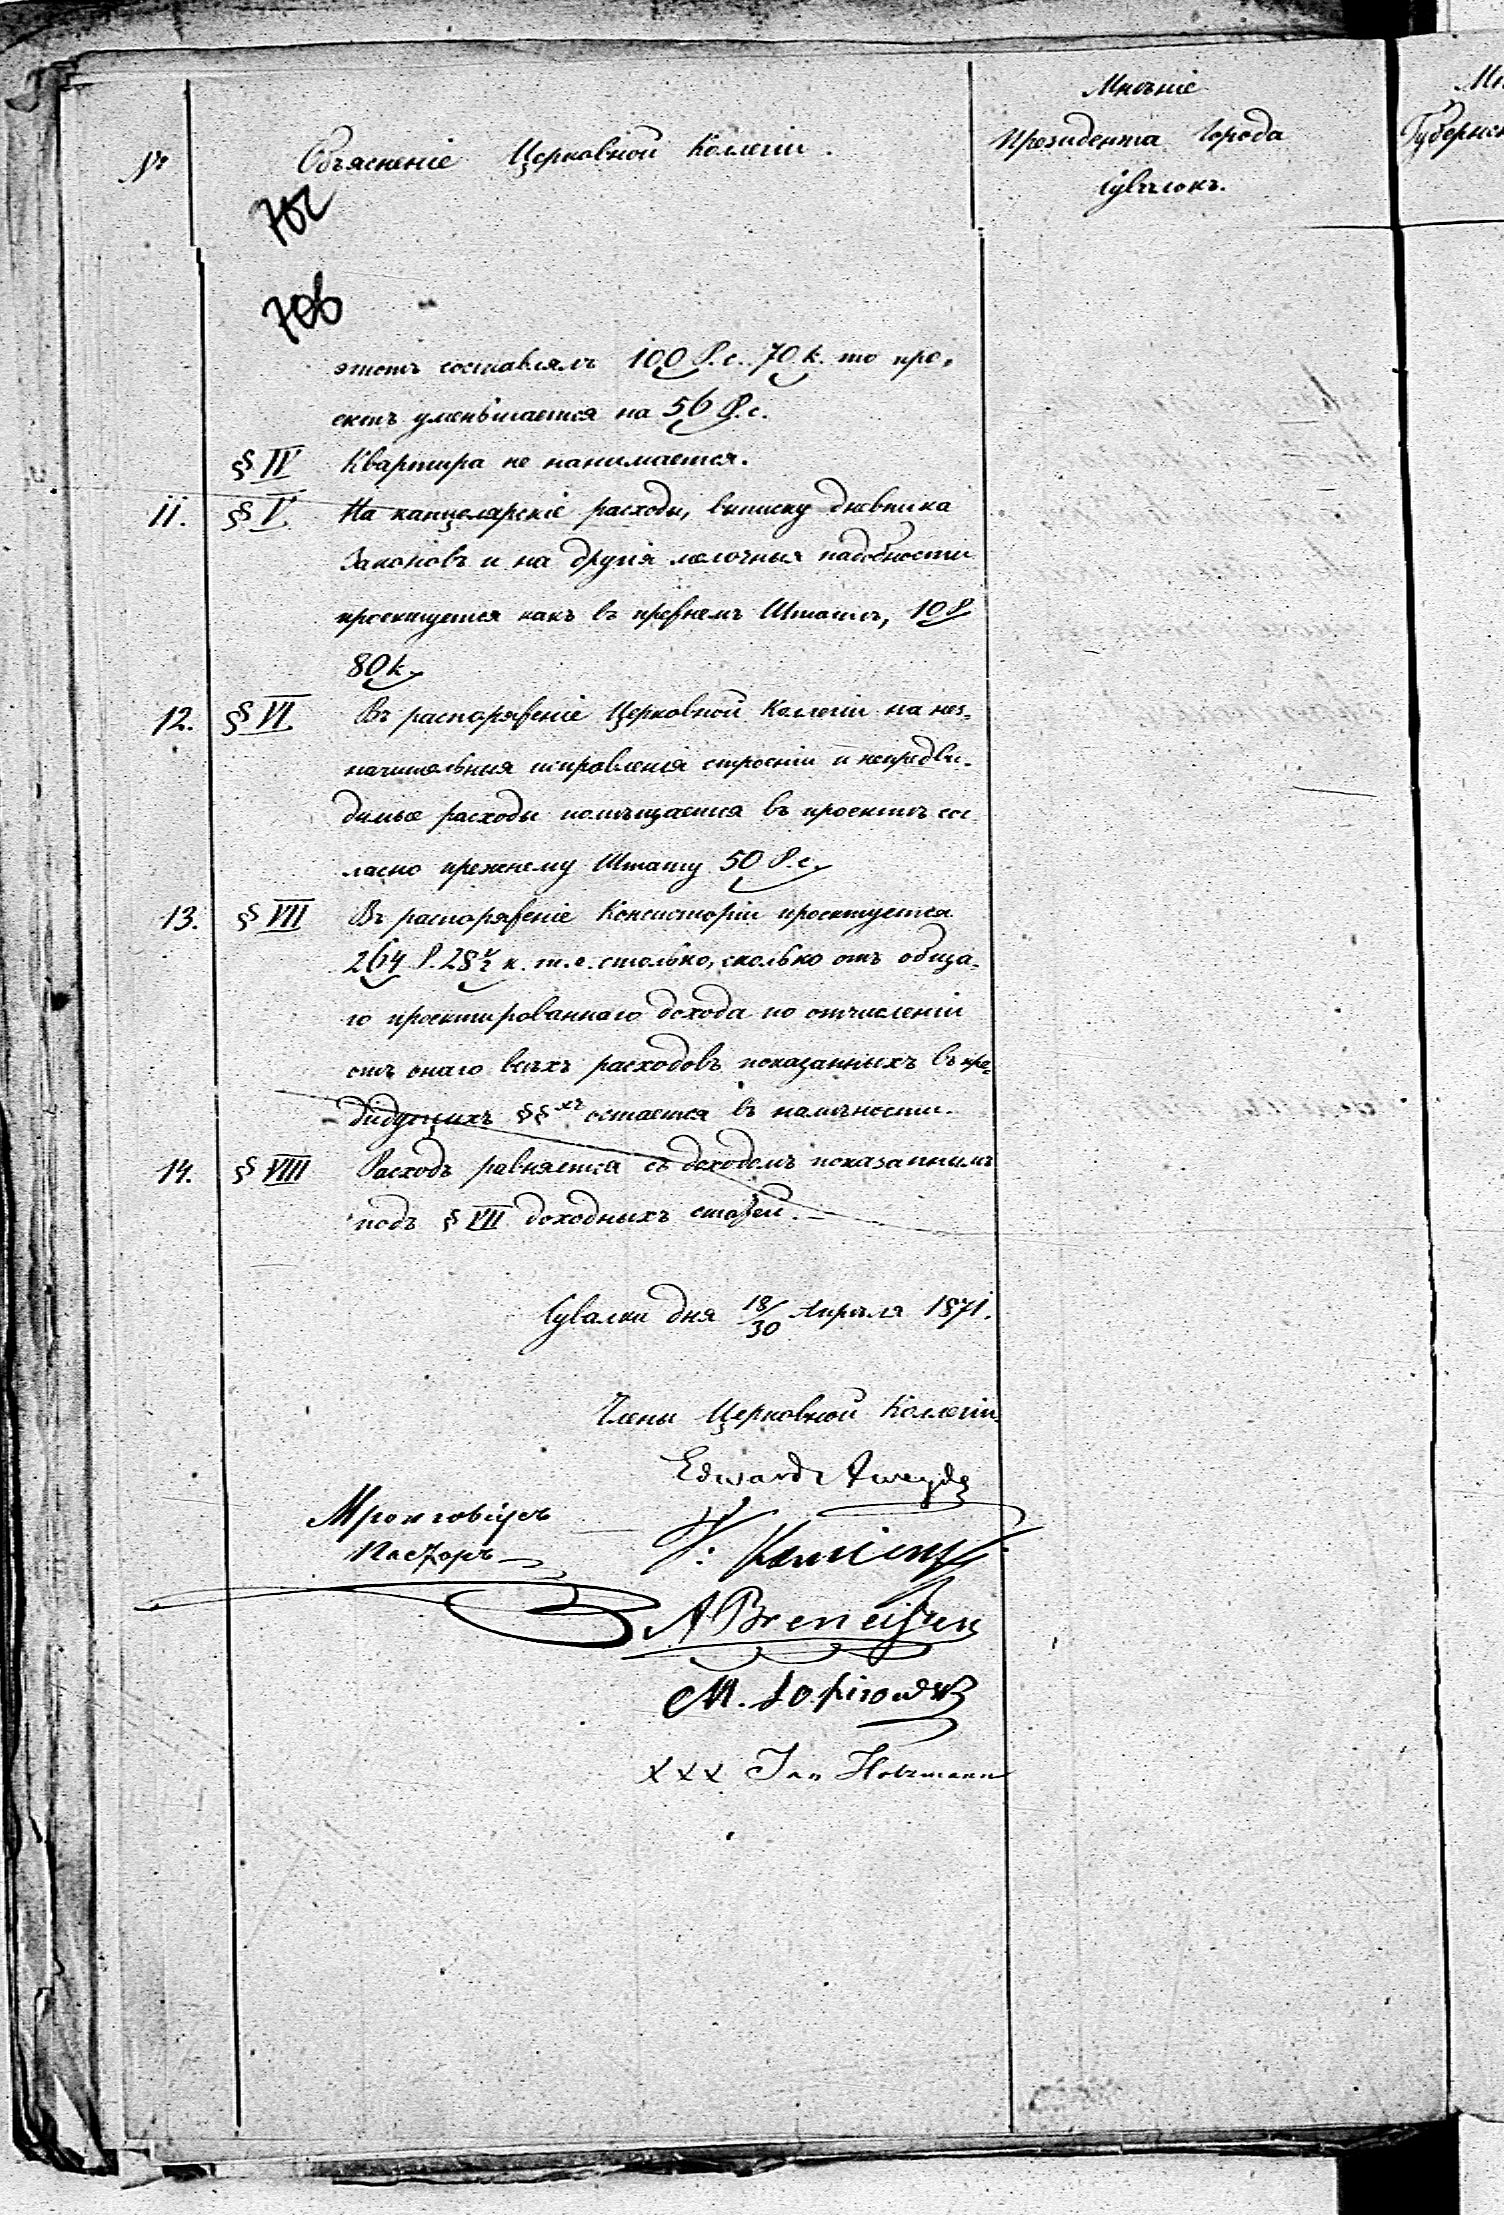 Мнѣніе
№ Объясненіе Церковной Коллегіи. Президента Города
Сувалокъ.
Губернск
702
706
этотъ составлялъ 100 Р.с. 70 к. то про„
ектъ уменьшается на 56 Р.с.
§ IV Квартира не нанимается.
11. § V На канцелярскіе расходы, выписку дневника
Законовъ и на другія мелочныя надобности
проектуется какъ въ прежнемъ Штатѣ, 10 Р
80 к.
12. § VI. Въ распоряженіе Церковной Коллегіи на нез„
начительныя исправленія строеній и непредви„
димые расходы помѣщается въ проектѣ сог
ласно прежнему Штату 50 Р.с.
13. § VII Въ распоряженіе Консисторіи проектуется
264 Р. 28½ к. т.е. столько, сколько отъ обща„
го проектированнаго дохода по отчисленіи
отъ онаго всѣхъ расходовъ показанныхъ въ пре„
дидущихъ §§хъ остается въ наличности.
14. § VIII Расходъ равняется съ доходомъ показаннымъ
подъ § VII доходныхъ статей.
Сувалки дня 18/30 Апрѣля 1871.
Члены Церковной Коллегіи
Edward
Мронговіусъ
Пасторъ
A Breneisen
M.
xxx Jan Holzmann